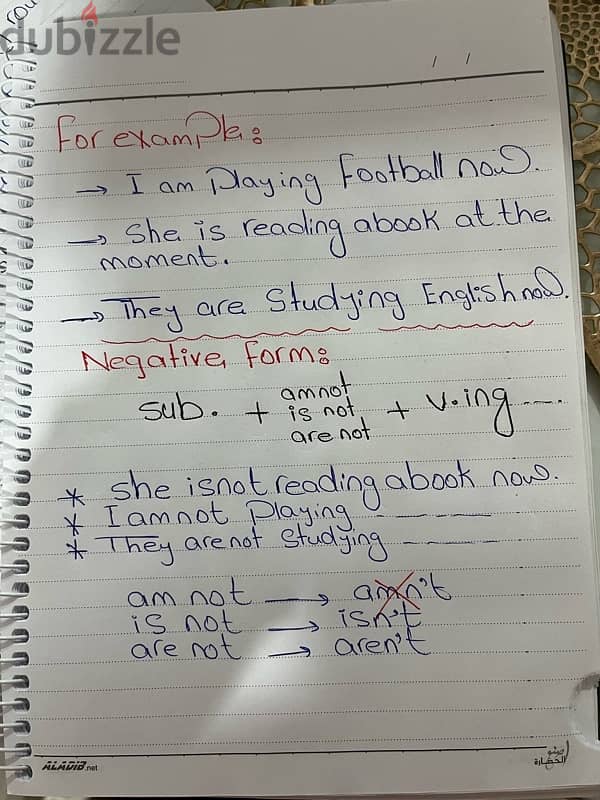 dubizzle
/ /
For example:
→ I am Playing Football now.
→ She is reading abook at the
moment.
→ They are Studying English now.
Negative form:
sub. + am not
is not
are not + v.ing ----.
* she isnot reading abook now.
* I amnot Playing ————
* They arenot Studying ————
am not → amn't
is not → isn't
are not → aren't
ALADIB.net
ضو
الحضارة